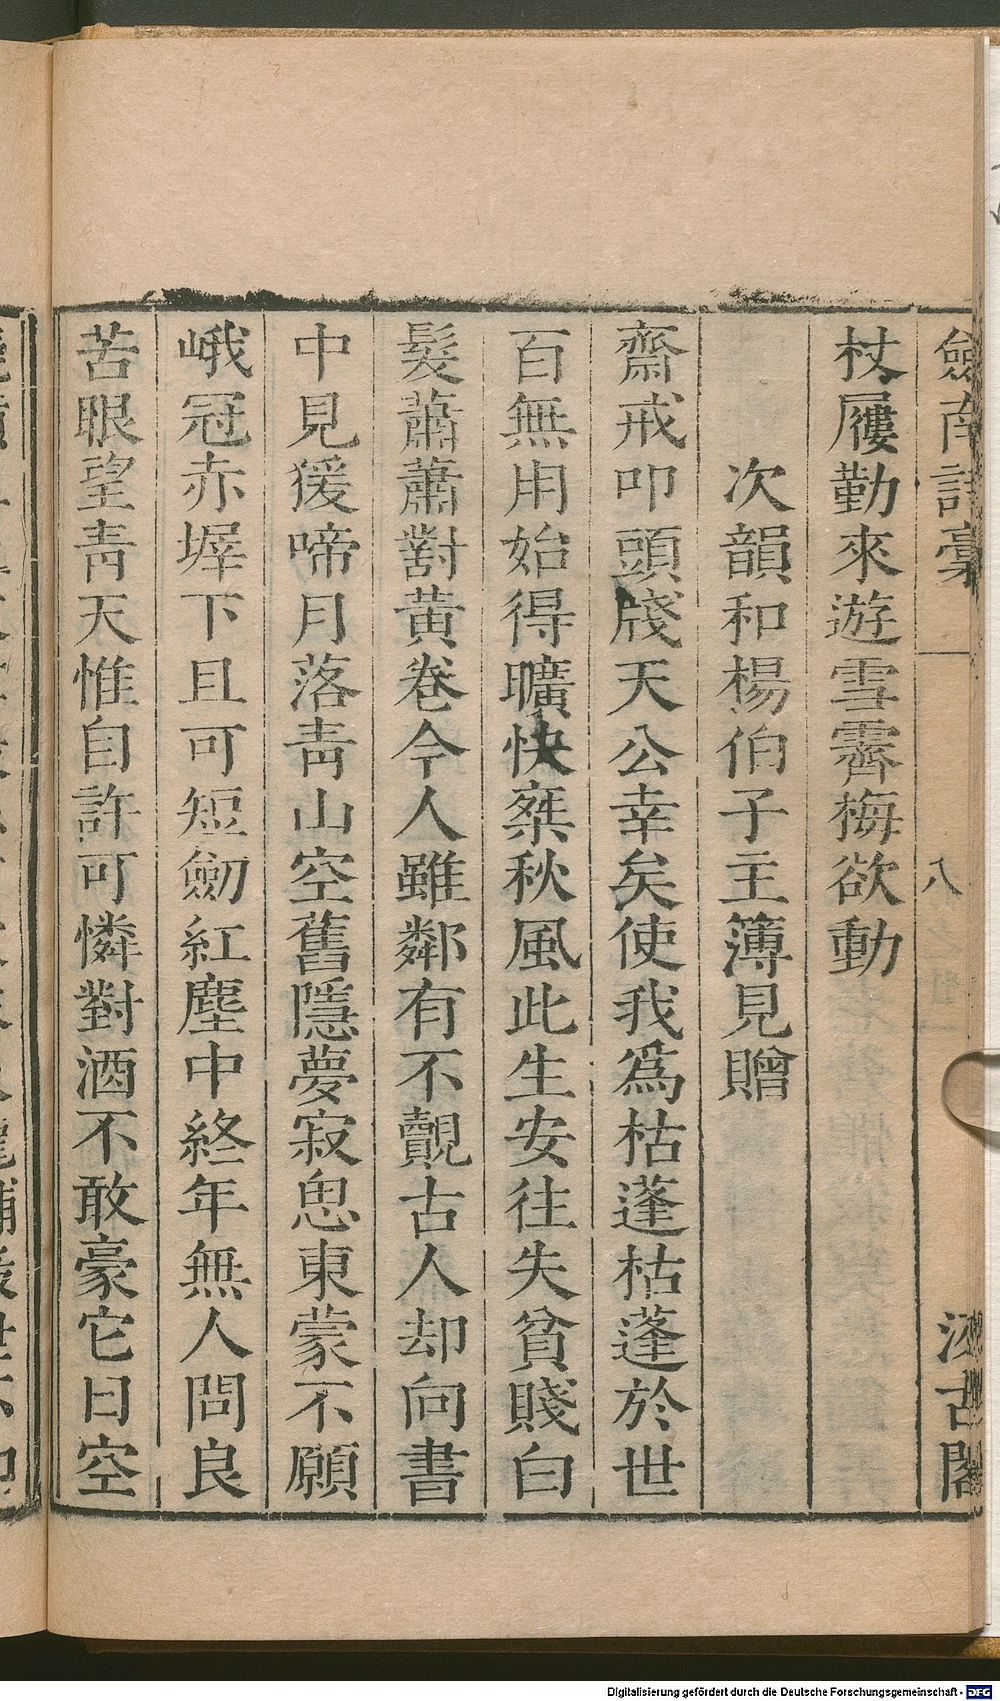 劒南詩槀
八
汲古閣
杖屨勤來遊雪霽梅欲動
次韻和楊伯子主簿見贈
齋戒叩頭牋天公幸矣使我爲枯蓬枯蓬於世
百無用始得曠快乗秋風此生安往失貧賤白
髮蕭蕭對黃卷今人雖鄰有不覿古人却向書
中見猨啼月落靑山空舊隱夢寂思東蒙不願
峨冠赤墀下且可短劒紅塵中終年無人問良
苦眼望靑天惟自許可憐對酒不敢豪它日空
Digitalisierung gefördert durch die Deutsche Forschungsgemeinschaft - DFG